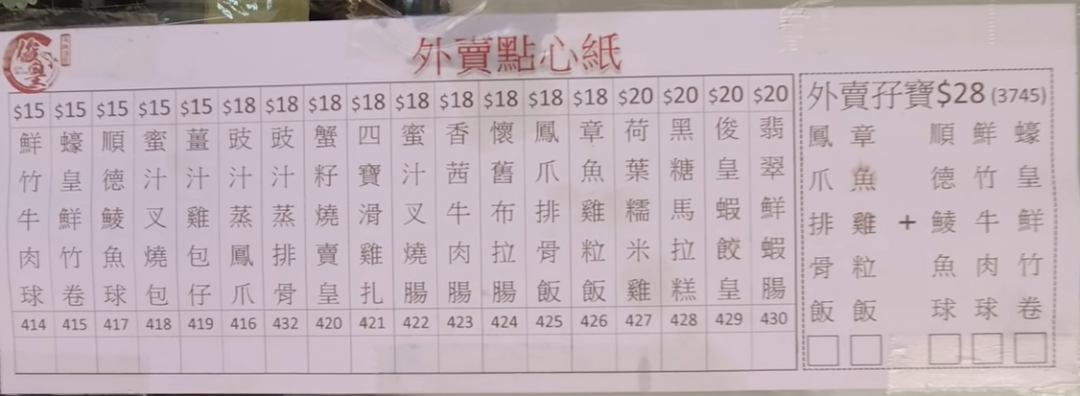 俊皇
外賣點心紙
$15 鮮竹牛肉球 414
$15 蠔皇鮮竹卷 415
$15 順德鯪魚球 417
$15 蜜汁叉燒包 418
$15 薑汁雞包仔 419
$18 豉汁蒸鳳爪 416
$18 豉汁蒸排骨 432
$18 蟹籽燒賣皇 420
$18 四寶滑雞扎 421
$18 蜜汁叉燒腸 422
$18 香茜牛肉腸 423
$18 懷舊布拉腸 424
$18 鳳爪排骨飯 425
$18 章魚雞粒飯 426
$20 荷葉糯米雞 427
$20 黑糖馬拉糕 428
$20 俊皇蝦餃皇 429
$20 翡翠鮮蝦腸 430
外賣孖寶$28 (3745)
鳳爪排骨飯
章魚雞粒飯
+
順德鯪魚球
鮮竹牛肉球
蠔皇鮮竹卷